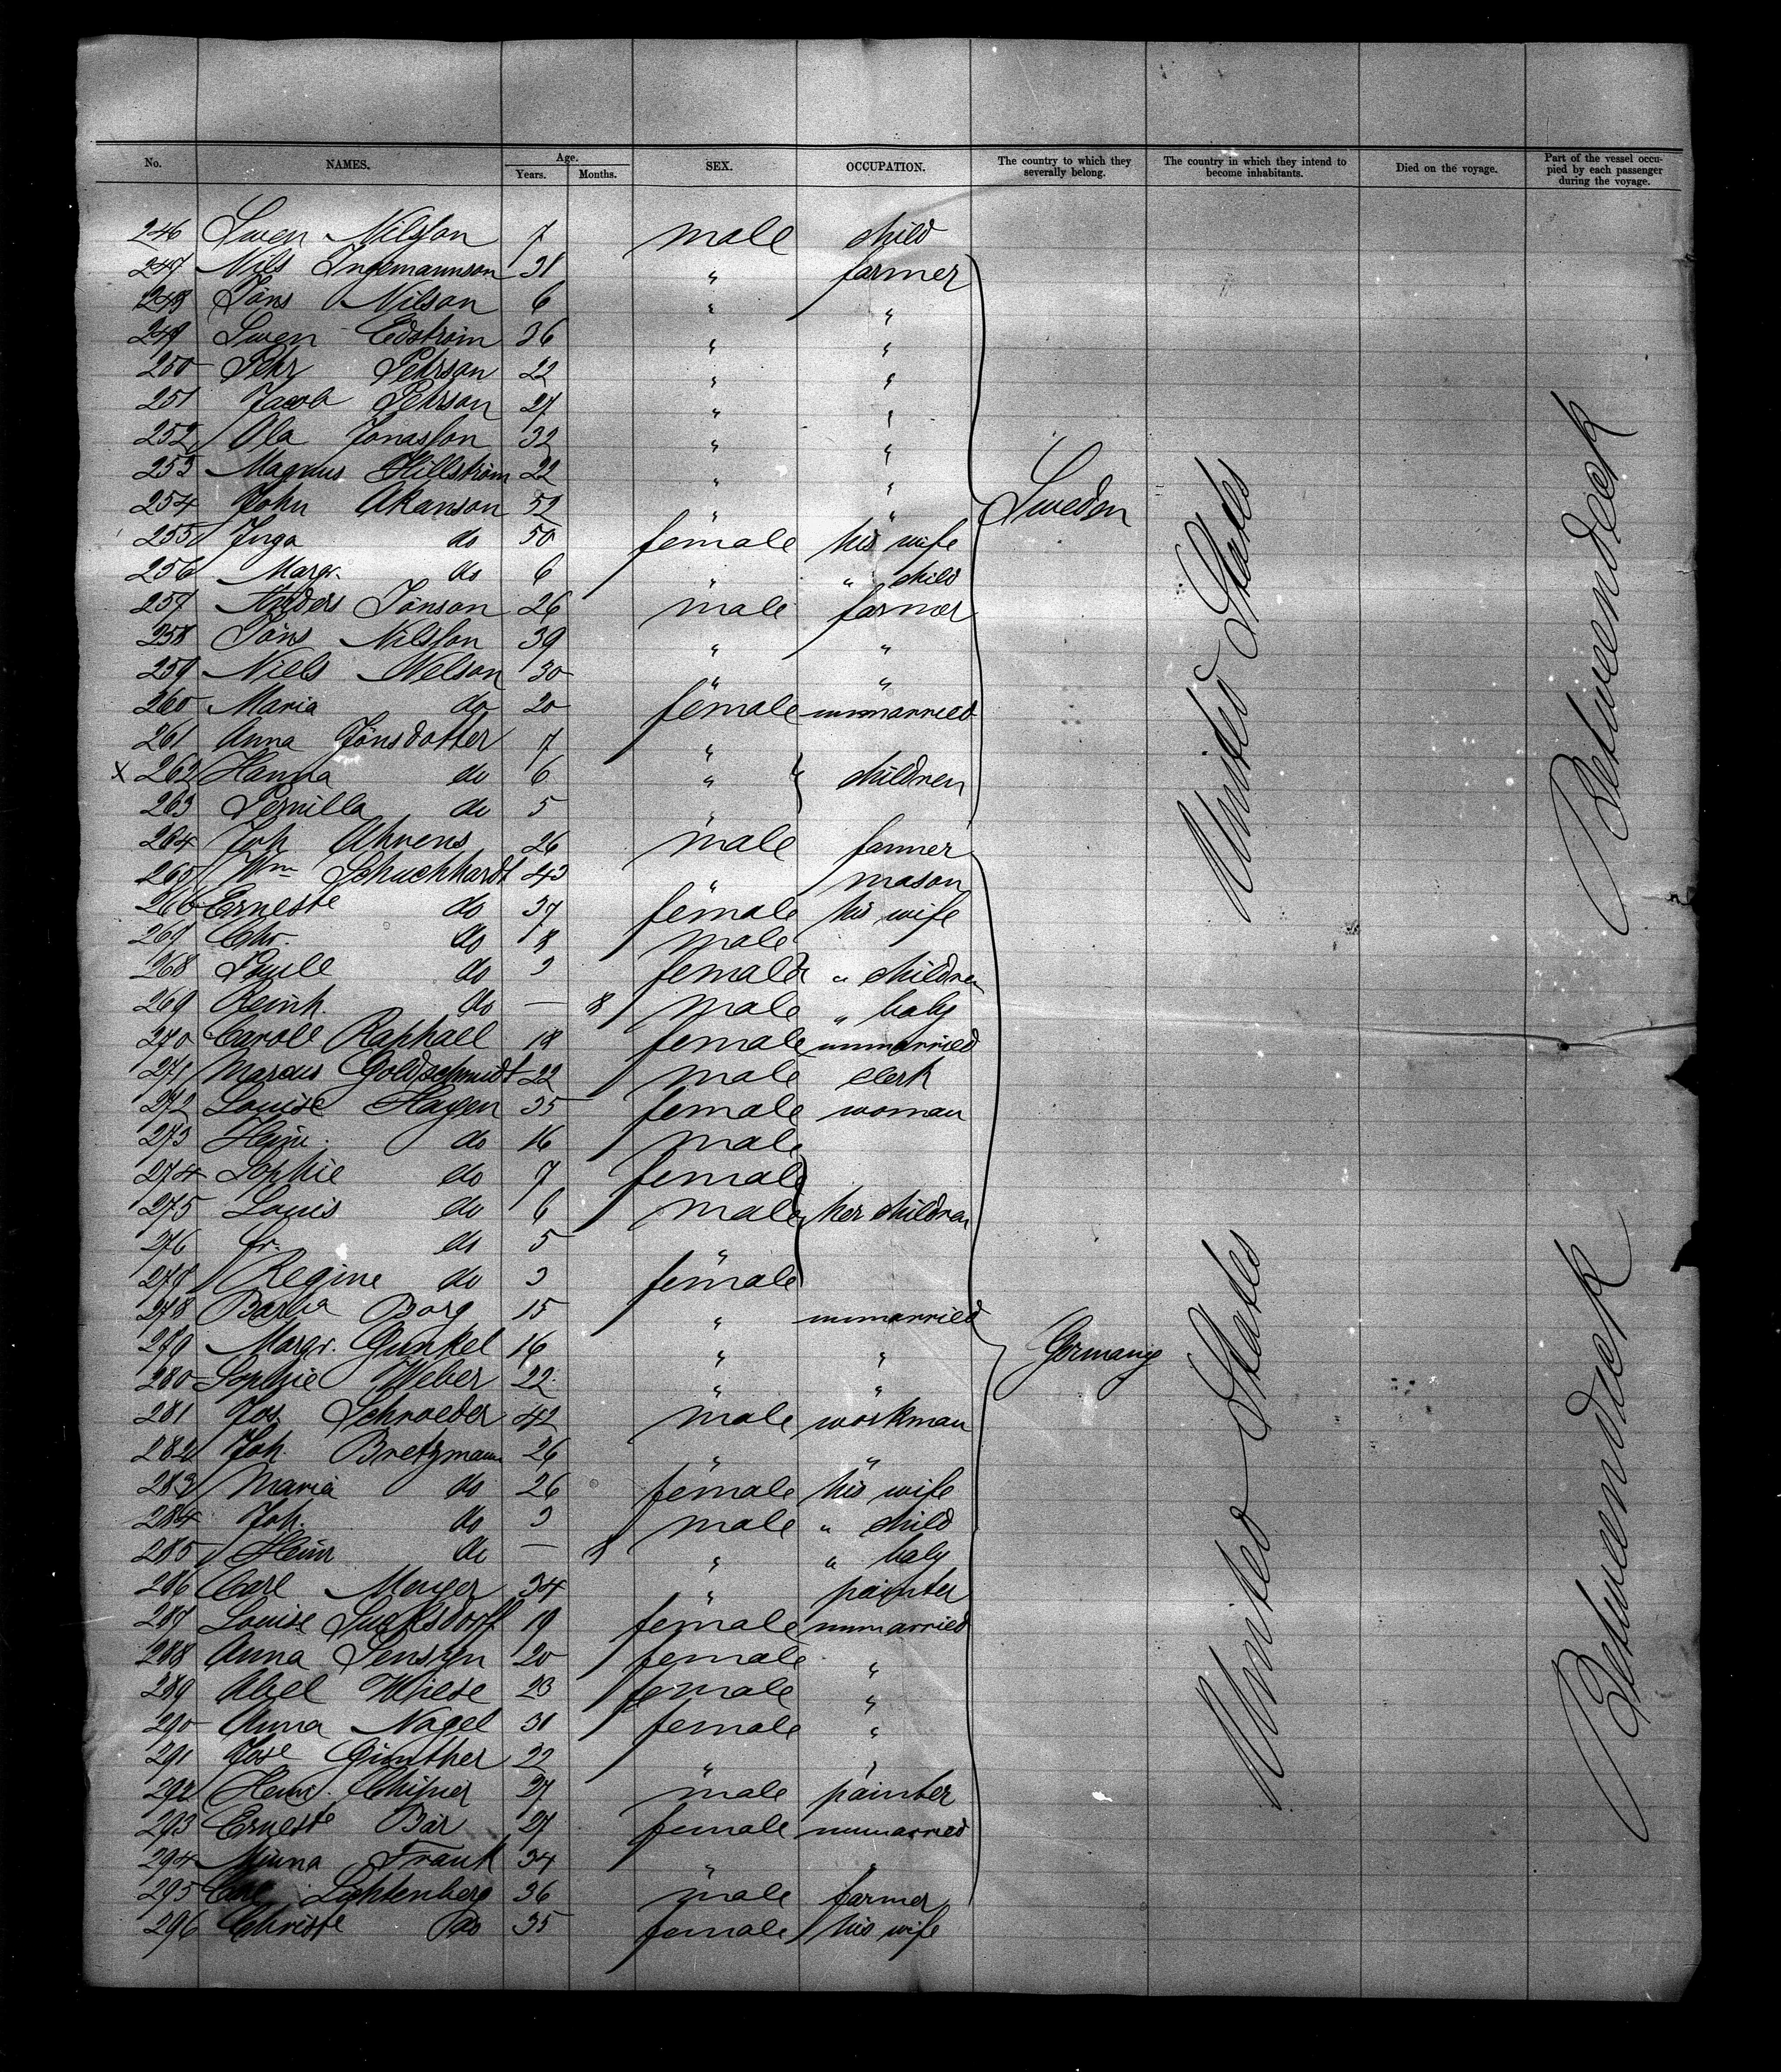 No. NAMES. Age. Years. Months. SEX. OCCUPATION. The country to which they severally belong. The country in which they intend to become inhabitants. Died on the voyage. Part of the vessel occupied by each passenger during the voyage.
246 Swen Nilsson 7 male child
247 Nils Ingemannson 31 " farmer
248 Jöns Nilson 6 " "
249 Swen Edström 36 " "
250 Pehr Pehrson 22 " "
251 Jacob Pehrson 27 " "
252 Ola Jonasson 32 " "
253 Magnus Hillström 22 " "
254 John Akanson 52 " " Sweden
255 Inga do 50 female his wife
256 Margr. do 6 " " child
257 Anders Jönson 26 male farmer
258 Jöns Nilsson 39 " "
259 Niels Nelson 30 " "
260 Maria do 20 female unmarried
261 Anna Jönsdotter 7 "
x 262 Hanna do 6 " children
263 Pernilla do 5 "
United States
Betweendeck
264 Joh Ahrens 26 male farmer
265 Wm Schuchhardt 43 " mason
266 Erneste do 37 female his wife
267 Chr. do 8 male
268 do 3 female " children
269 Heinh. do — 8 male " baby
270 Caroll Raphael 18 female unmarried
271 Marcus Goldschmidt 22 male clerk
272 Louise Hagen 35 female woman
273 Heinr. do 16 male
274 Sophie do 7 female
275 Louis do 6 male her children
276 Fr. do 5 "
278 Regine do 3 female
278 Barba Borg 15 " unmarried
279 Margr. Gunkel 16 " " Germany
280 Sophie Weber 22 " "
281 Jos. Schroeder 42 male workman
282 Joh Bretzmann 26 " "
283 Maria do 26 female his wife
284 Joh. do 3 male " child
285 Heinr do — 8 " " baby
286 Carl Meyer 34 " painter
287 Louise Lucksdorff 19 female unmarried
288 Anna Jensen 20 female "
289 Abel Wiese 23 female "
290 Anna Nagel 31 female "
291 Jose Günther 22 " "
292 Heinr. 27 male painter
293 Erneste Bär 27 female unmarried
294 Minna Frank 34 " "
295 Carl Lichtenberg 36 male farmer
296 Christe do 35 female his wife
United States
Betweendeck